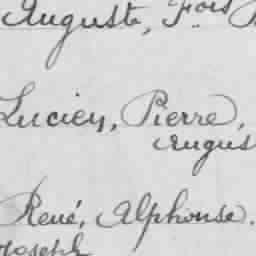 Auguste, Fois
Lucien, Pierre,
Augus
René, Alphonse.
Joseph